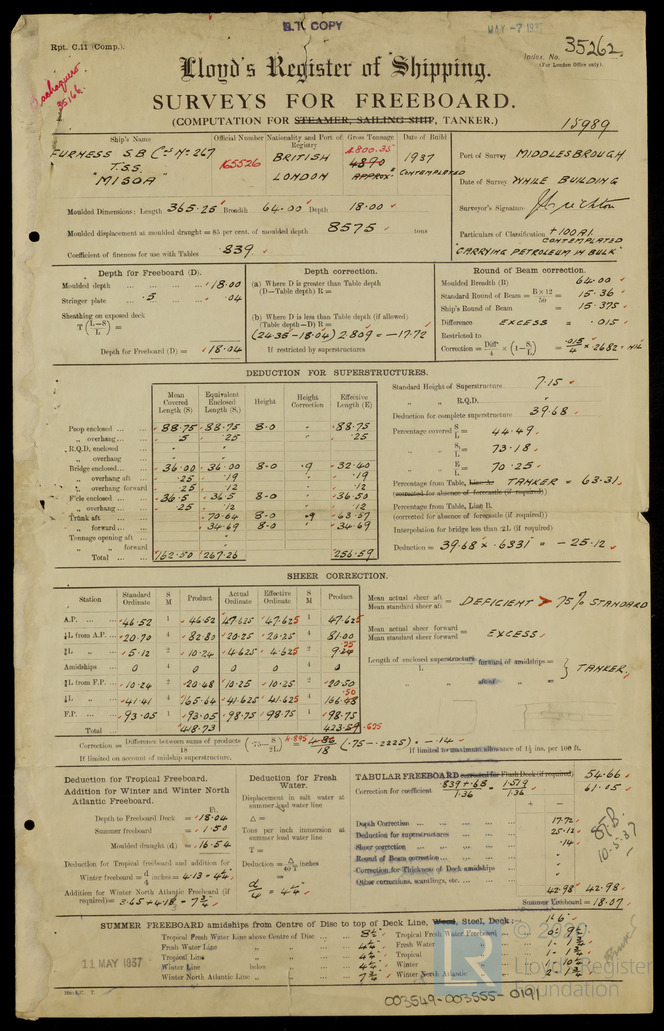 B.T. COPY
MAY -7 1937
Rpt. C.11 (Comp.).
Index. No. 35262
(For London Office only).
35166
Lloyd's Register of Shipping.
SURVEYS FOR FREEBOARD.
(COMPUTATION FOR STEAMER, SAILING SHIP, TANKER.)
15989
Ship's Name Official Number Nationality and Port of Registry Gross Tonnage Date of Build
FURNESS S.B Co's No 267
T.S.S.
"MISOA"
165526
BRITISH
LONDON
4.800.35
4890
APPROX
1937
CONTEMPLATED
Port of Survey MIDDLESBROUGH
Date of Survey WHILE BUILDING
Surveyor's Signature
Particulars of Classification +100A1.
CONTEMPLATED
"CARRYING PETROLEUM IN BULK"
Moulded Dimensions: Length 365.25 Breadth 64.00 Depth 18.00
Moulded displacement at moulded draught = 85 per cent. of moulded depth 8575 tons
Coefficient of fineness for use with Tables .839
Depth for Freeboard (D).
Moulded depth 18.00
Stringer plate .5 .04
Sheathing on exposed deck
T (L-S/L) =
Depth for Freeboard (D) = 18.04
Depth correction.
(a) Where D is greater than Table depth
(D-Table depth) R =
(b) Where D is less than Table depth (if allowed)
(Table depth-D) R =
(24.35-18.04) 2.809 = -17.72
If restricted by superstructures
Round of Beam correction.
Moulded Breadth (B) 64.00
Standard Round of Beam = B×12/50 = 15.36
Ship's Round of Beam = 15.375
Difference EXCESS = .015
Restricted to
Correction = Diff/4 × (1-S₁/L) = .015/4 × .2682 = NIL
DEDUCTION FOR SUPERSTRUCTURES.
Mean Covered Length (S) Equivalent Enclosed Length (S₁) Height Height Correction Effective Length (E)
Poop enclosed 88.75 88.75 8.0 88.75
" overhang 5 .25 .25
R.Q.D. enclosed
" overhang
Bridge enclosed 36.00 36.00 8.0 .9 32.40
" overhang aft .25 .19 .19
" overhang forward .25 .12 .12
F'cle enclosed 36.5 36.5 8.0 36.50
" overhang .25 .12 .12
Trunk aft 70.64 8.0 .9 63.57
" forward 34.69 8.0 34.69
Tonnage opening aft
" " forward
Total 162.50 267.26 256.59
Standard Height of Superstructure 7.15
" " R.Q.D.
Deduction for complete superstructure 39.68
Percentage covered S/L = 44.49
" " S₁/L = 73.18
" " E/L = 70.25
Percentage from Table, Line A. TANKER = 63.31
(corrected for absence of forecastle (if required))
Percentage from Table, Line B.
(corrected for absence of forecastle (if required))
Interpolation for bridge less than .2L (if required)
Deduction = 39.68 × .6331 = -25.12
SHEER CORRECTION.
Station Standard Ordinate S M Product Actual Ordinate Effective Ordinate S M Product
A.P. 46.52 1 46.52 47.625 47.625 1 47.625
⅙L from A.P. 20.70 4 82.80 20.25 20.25 4 81.00
⅓L " 5.12 2 10.24 4.625 4.625 2 9.24 .25
Amidships 0 4 0 0 0 4 0
⅓L from F.P. 10.24 2 20.48 10.25 10.25 2 20.50
⅙L " 41.41 4 165.64 41.625 41.625 4 166.48 .50
F.P. 93.05 1 93.05 98.75 98.75 1 98.75
Total 418.73 423.59 .625
Mean actual sheer aft
Mean standard sheer aft = DEFICIENT > 75% STANDARD
Mean actual sheer forward
Mean standard sheer forward = EXCESS.
Length of enclosed superstructure forward of amidships =
L " aft of " = } TANKER
Correction = Difference between sums of products/18 (.75-S/2L) = 4.895 4.86/18 (.75-.2225) = -.14
If limited on account of midship superstructure.
If limited to maximum allowance of 1½ ins. per 100 ft.
Deduction for Tropical Freeboard.
Addition for Winter and Winter North
Atlantic Freeboard.
Ft.
Depth to Freeboard Deck = 18.04
Summer freeboard = 1.50
Moulded draught (d) = 16.54
Deduction for Tropical freeboard and addition for
Winter freeboard = d/4 inches = 4.13 = 4¼
Addition for Winter North Atlantic Freeboard (if
required) = 3.65 + 4.18 = 7¾
Deduction for Fresh
Water.
Displacement in salt water at
summer load water line
Δ =
Tons per inch immersion at
summer load water line
T =
Deduction = Δ/40T inches
d/4 = 4¼
TABULAR FREEBOARD corrected for Flush Deck (if required) 54.66
Correction for coefficient .839 + .68/1.36 = 1.519/1.36 61.15
+ -
Depth Correction 17.72
Deduction for superstructures 25.12
Sheer correction .14
Round of Beam correction
Correction for Thickness of Deck amidships
Other corrections, scantlings, etc.
42.98 42.98
Summer Freeboard = 18.07
10-5-37
SUMMER FREEBOARD amidships from Centre of Disc to top of Deck Line, Wood, Steel, Deck: 1-6
Tropical Fresh Water Line above Centre of Disc 8½ Tropical Fresh Water Freeboard 0-9½
Fresh Water Line " " 4¼ Fresh Water " 1-1¾
Tropical Line " " 4¼ Tropical " 1-1¾
Winter Line below " 4¼ Winter " 1-10¼
Winter North Atlantic Line " " 7¾ Winter North Atlantic " 2-1¾
11 MAY 1937
LR
© 2020
Lloyd's Register
Foundation
003549-003555-0191